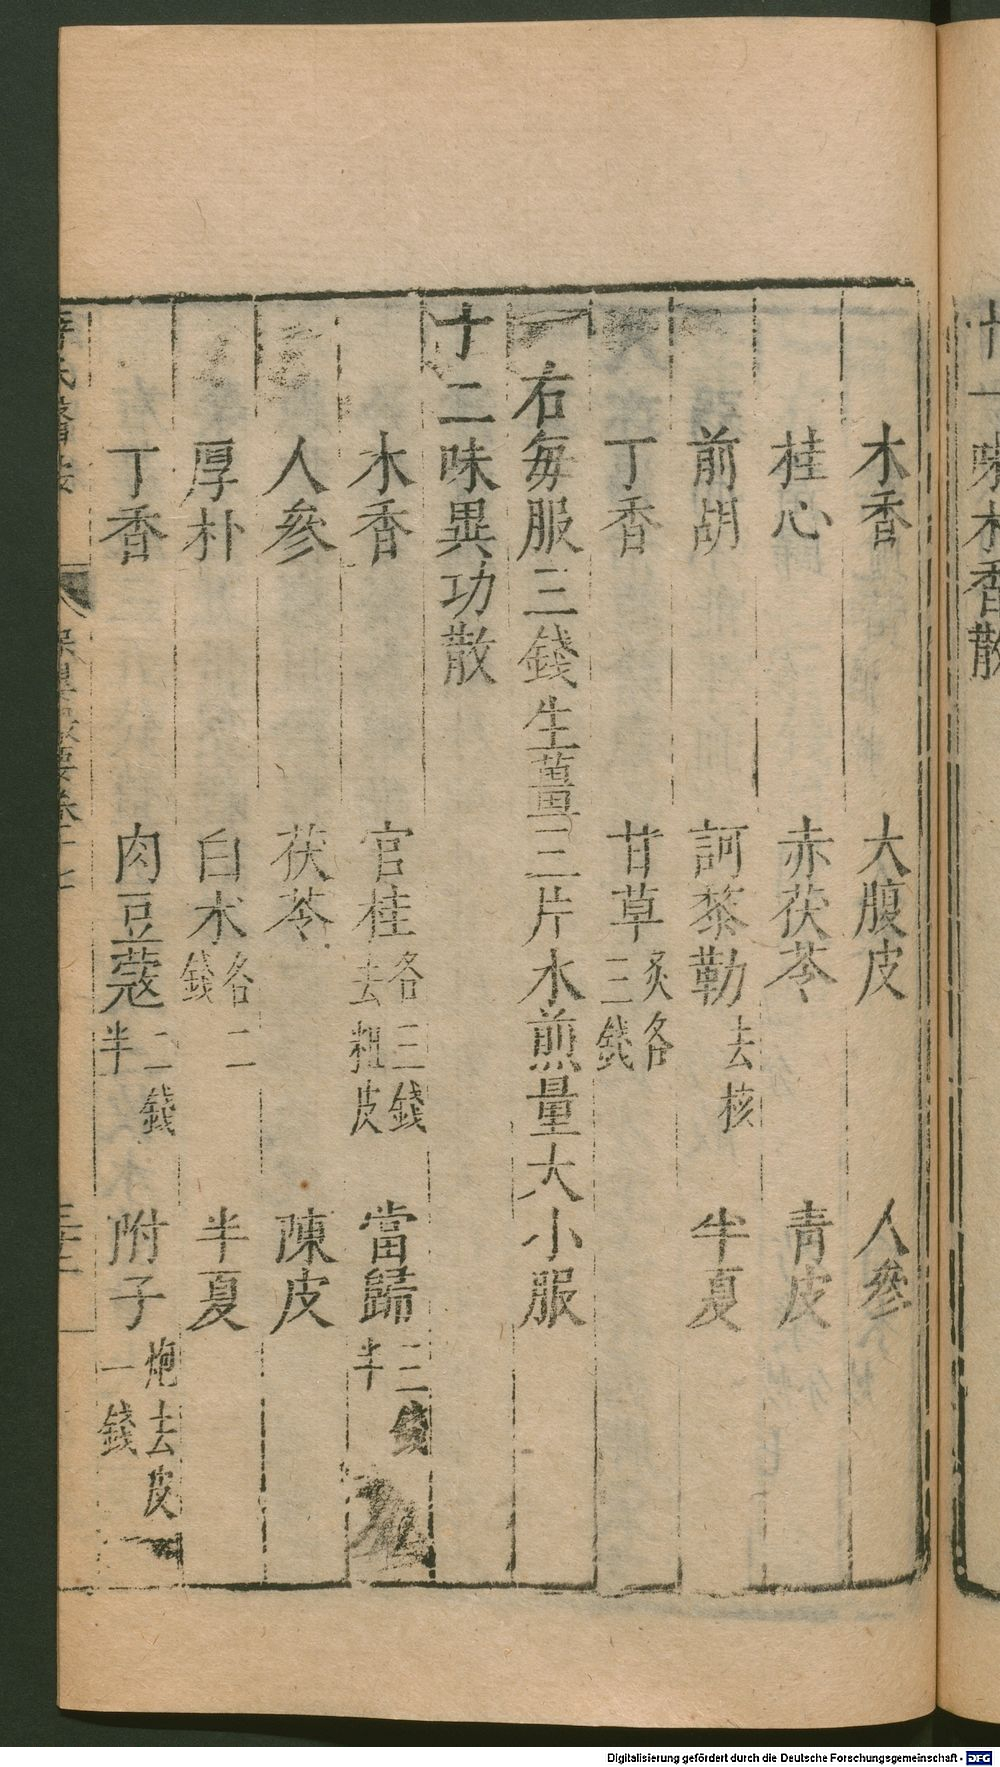 十一味木香散
木香　大腹皮　人參
桂心　赤茯苓　青皮
前胡　訶黎勒去核　半夏
丁香　甘草炙各三錢
右每服三錢生薑三片水煎量大小服
十二味異功散
木香　官桂各三錢去粗皮　當歸三錢半
人參　茯苓　陳皮
厚朴　白朮各二錢　半夏
丁香　肉豆蔻二錢半　附子炮去皮一錢
Digitalisierung gefördert durch die Deutsche Forschungsgemeinschaft - DFG